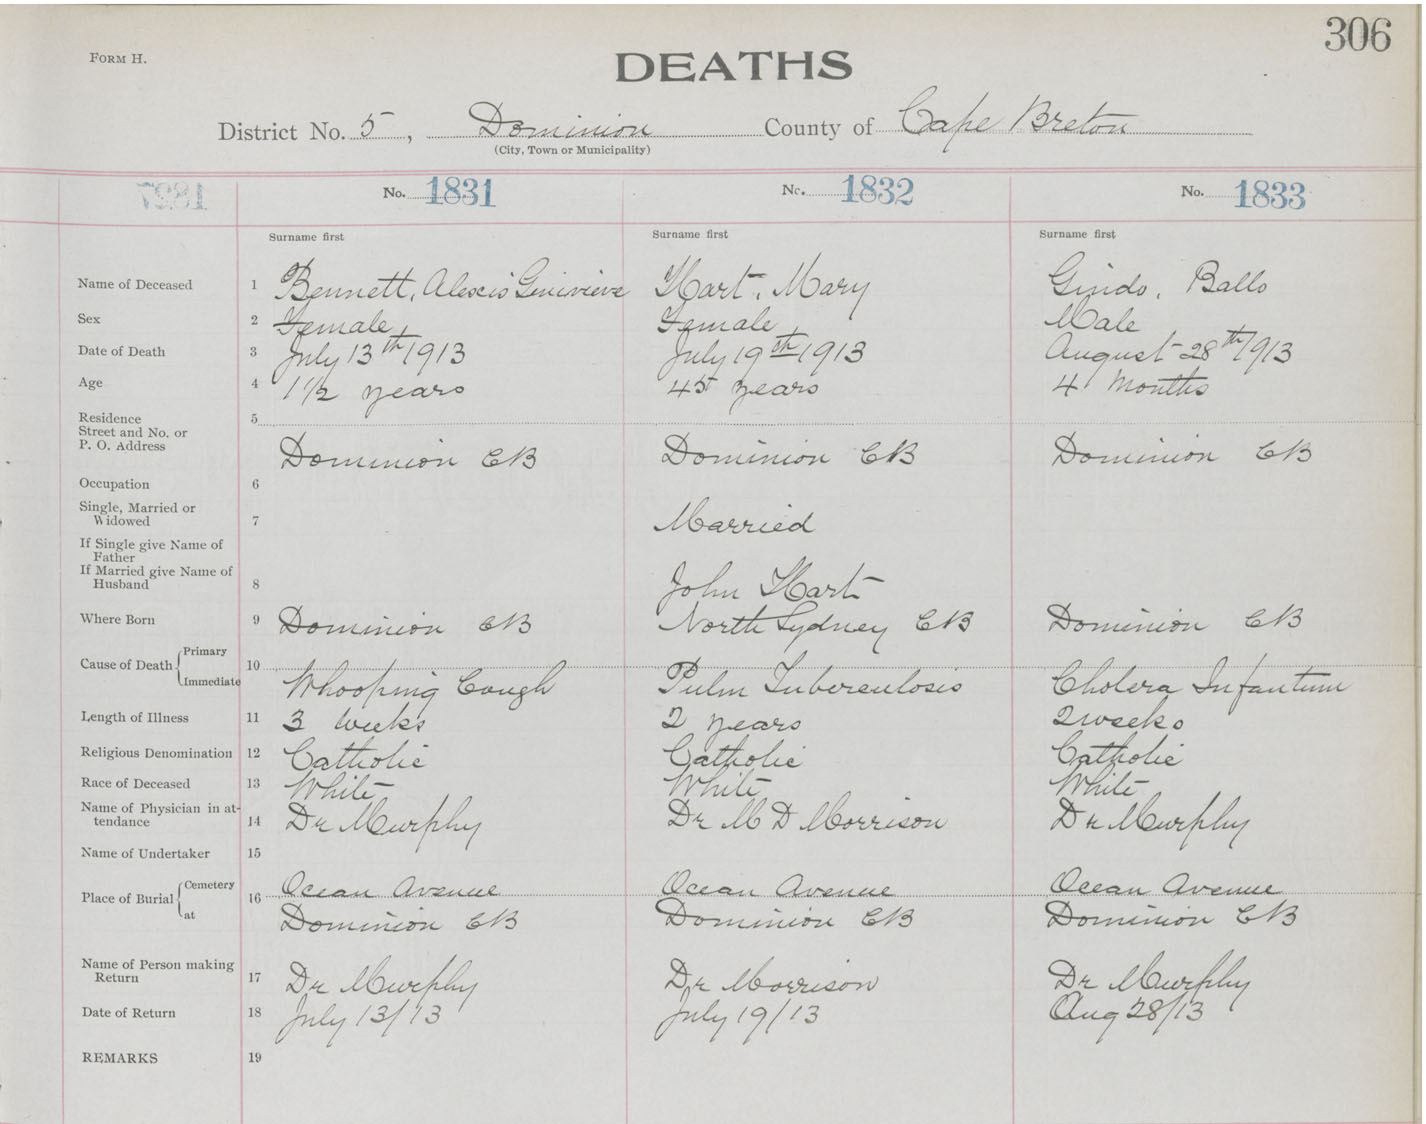 306
FORM H.
DEATHS
District No. 5, Dominion County of Cape Breton
(City, Town or Municipality)
1827 No. 1831 No. 1832 No. 1833
Surname first Surname first Surname first
Name of Deceased 1 Bennett, Alexis Genivieve Hart, Mary Gindo, Ballo
Sex 2 Female Female Male
Date of Death 3 July 13th 1913 July 19th 1913 August 28th/1913
Age 4 1 1/2 years 45 years 4 months
Residence 5
Street and No. or
P. O. Address Dominion CB Dominion CB Dominion CB
Occupation 6
Single, Married or
Widowed 7 Married
If Single give Name of
Father
If Married give Name of
Husband 8 John Hart
Where Born 9 Dominion CB North Sydney CB Dominion CB
Primary
Cause of Death 10
Immediate Whooping Cough Pulm Tuberculosis Cholera Infantum
Length of Illness 11 3 weeks 2 years 2 weeks
Religious Denomination 12 Catholic Catholic Catholic
Race of Deceased 13 White White White
Name of Physician in at-
tendance 14 Dr Murphy Dr M D Morrison Dr Murphy
Name of Undertaker 15
Cemetery Ocean Avenue Ocean Avenue Ocean Avenue
Place of Burial 16
at Dominion CB Dominion CB Dominion CB
Name of Person making
Return 17 Dr Murphy Dr Morrison Dr Murphy
Date of Return 18 July 13/13 July 19/13 Aug 28/13
REMARKS 19